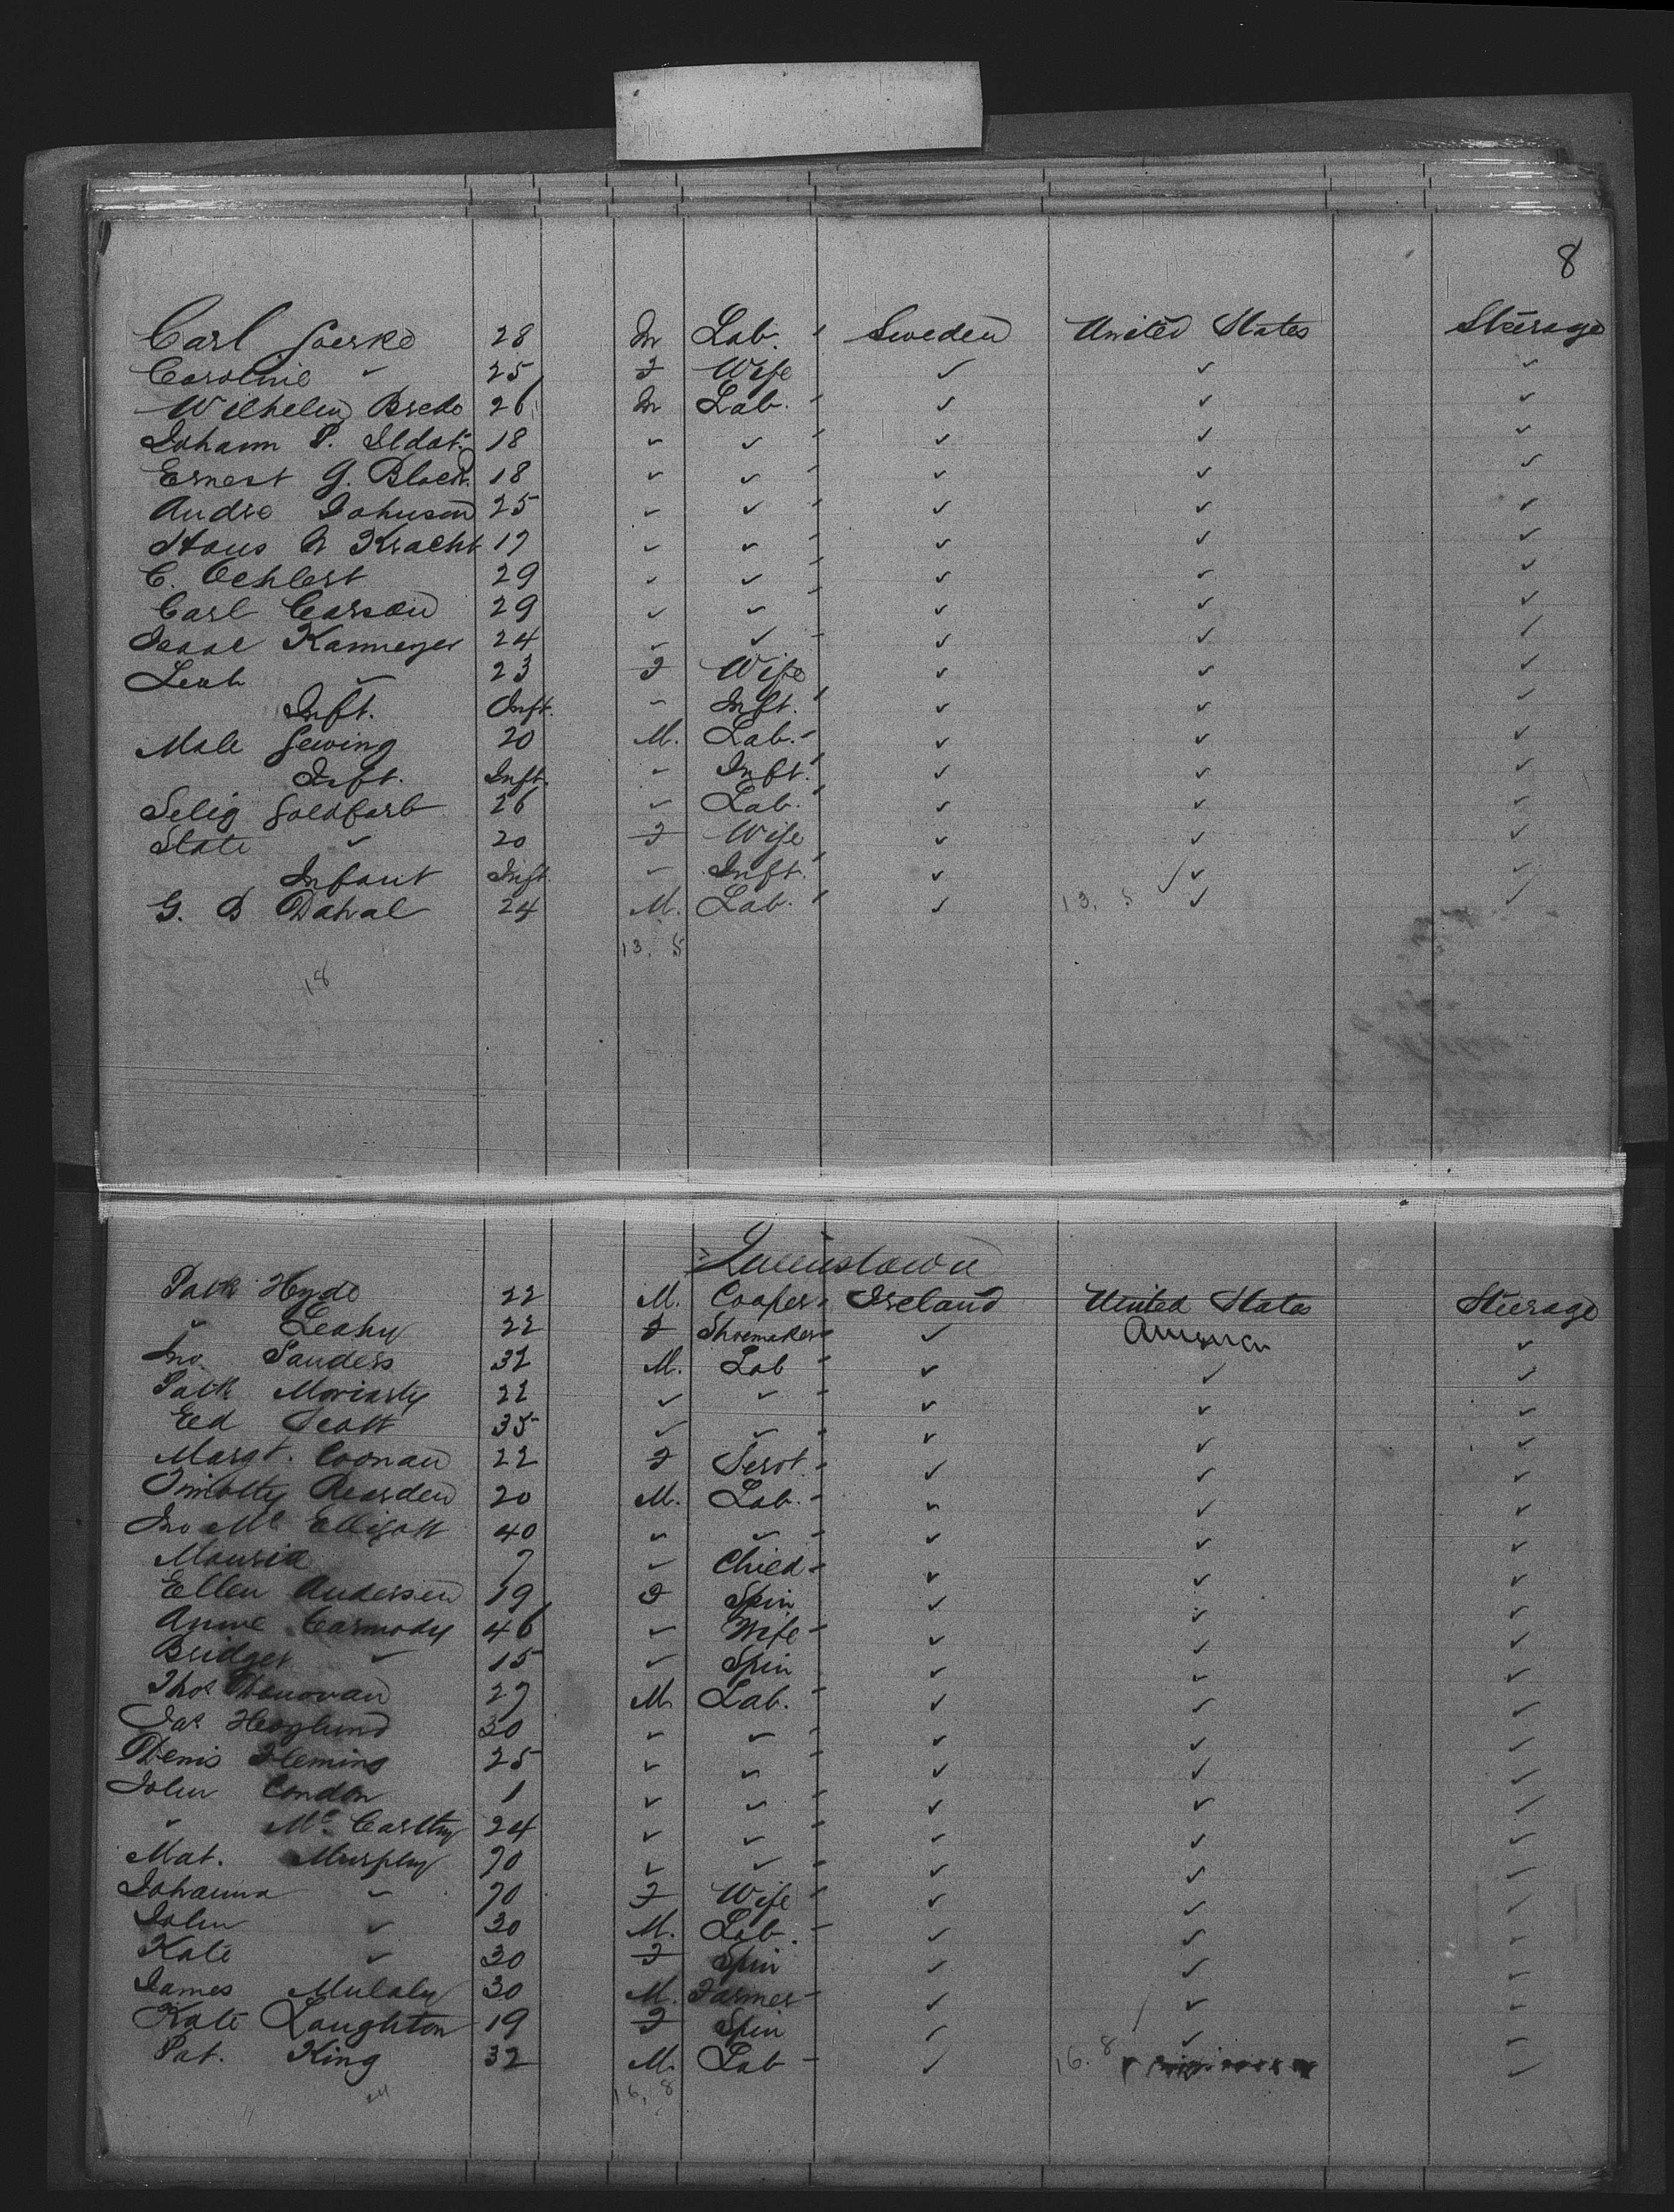 8
Carl Goerke 28 M Lab. Sweden United States Steerage
Caroline " 25 F Wife ✓ ✓ ✓
Wilhelm Brede 26 M Lab. ✓ ✓ ✓
Johann P. 18 ✓ ✓ ✓ ✓ ✓
Ernest G. Block 18 ✓ ✓ ✓ ✓ ✓
Andre Johnson 25 ✓ ✓ ✓ ✓ ✓
Hans N Kracht 17 ✓ ✓ ✓ ✓ ✓
C. Oehlert 29 ✓ ✓ ✓ ✓ ✓
Carl Carson 29 ✓ ✓ ✓ ✓ ✓
Isaac Kanmeyer 24 ✓ ✓ ✓ ✓ ✓
Leah ✓ 23 F Wife ✓ ✓ ✓
Inft. Inft. ✓ Inft. ✓ ✓ ✓
Male Gewing 20 M. Lab. ✓ ✓ ✓
Inft. Inft. ✓ Inft. ✓ ✓ ✓
Selig Goldfarb 26 ✓ Lab. ✓ ✓ ✓
State ✓ 20 F Wife ✓ ✓ ✓
Infant Inft. ✓ Inft. ✓ ✓ ✓
G. B Dahal 24 M. Lab. ✓ 13. 5 ✓ ✓
13. 5
18
Queenstown
Patk Hyde 22 M. Cooper Ireland United States Steerage
" Leahy 22 F Shoemaker ✓ America ✓
Jno. Sanders 32 M. Lab ✓ ✓ ✓
Patk Moriarty 22 ✓ ✓ ✓ ✓ ✓
Ed Scott 35 ✓ ✓ ✓ ✓ ✓
Margt. Coonan 22 F Servt. ✓ ✓ ✓
Timothy Rearden 20 M. Lab. ✓ ✓ ✓
Jno Mc Elligott 40 ✓ ✓ ✓ ✓ ✓
7 ✓ Child ✓ ✓ ✓
Ellen Anderson 19 F Spin ✓ ✓ ✓
Anne Carmody 46 ✓ Wife ✓ ✓ ✓
Bridget ✓ 15 ✓ Spin ✓ ✓ ✓
Thos Denovan 27 M Lab. ✓ ✓ ✓
Jas 30 ✓ ✓ ✓ ✓ ✓
Denis Fleming 25 ✓ ✓ ✓ ✓ ✓
John Condon 1 ✓ ✓ ✓ ✓ ✓
" Mc Carthy 24 ✓ ✓ ✓ ✓ ✓
Mat. Murphy 70 ✓ ✓ ✓ ✓ ✓
Johanna ✓ 70 F Wife ✓ ✓ ✓
John ✓ 30 M. Lab. ✓ ✓ ✓
Kate ✓ 30 F Spin ✓ ✓ ✓
James Mulaly 30 M. Farmer ✓ ✓ ✓
Kate Loughton 19 F Spin ✓ ✓ ✓
Pat. King 32 M. Lab ✓ 16. 8 ✓
16. 8